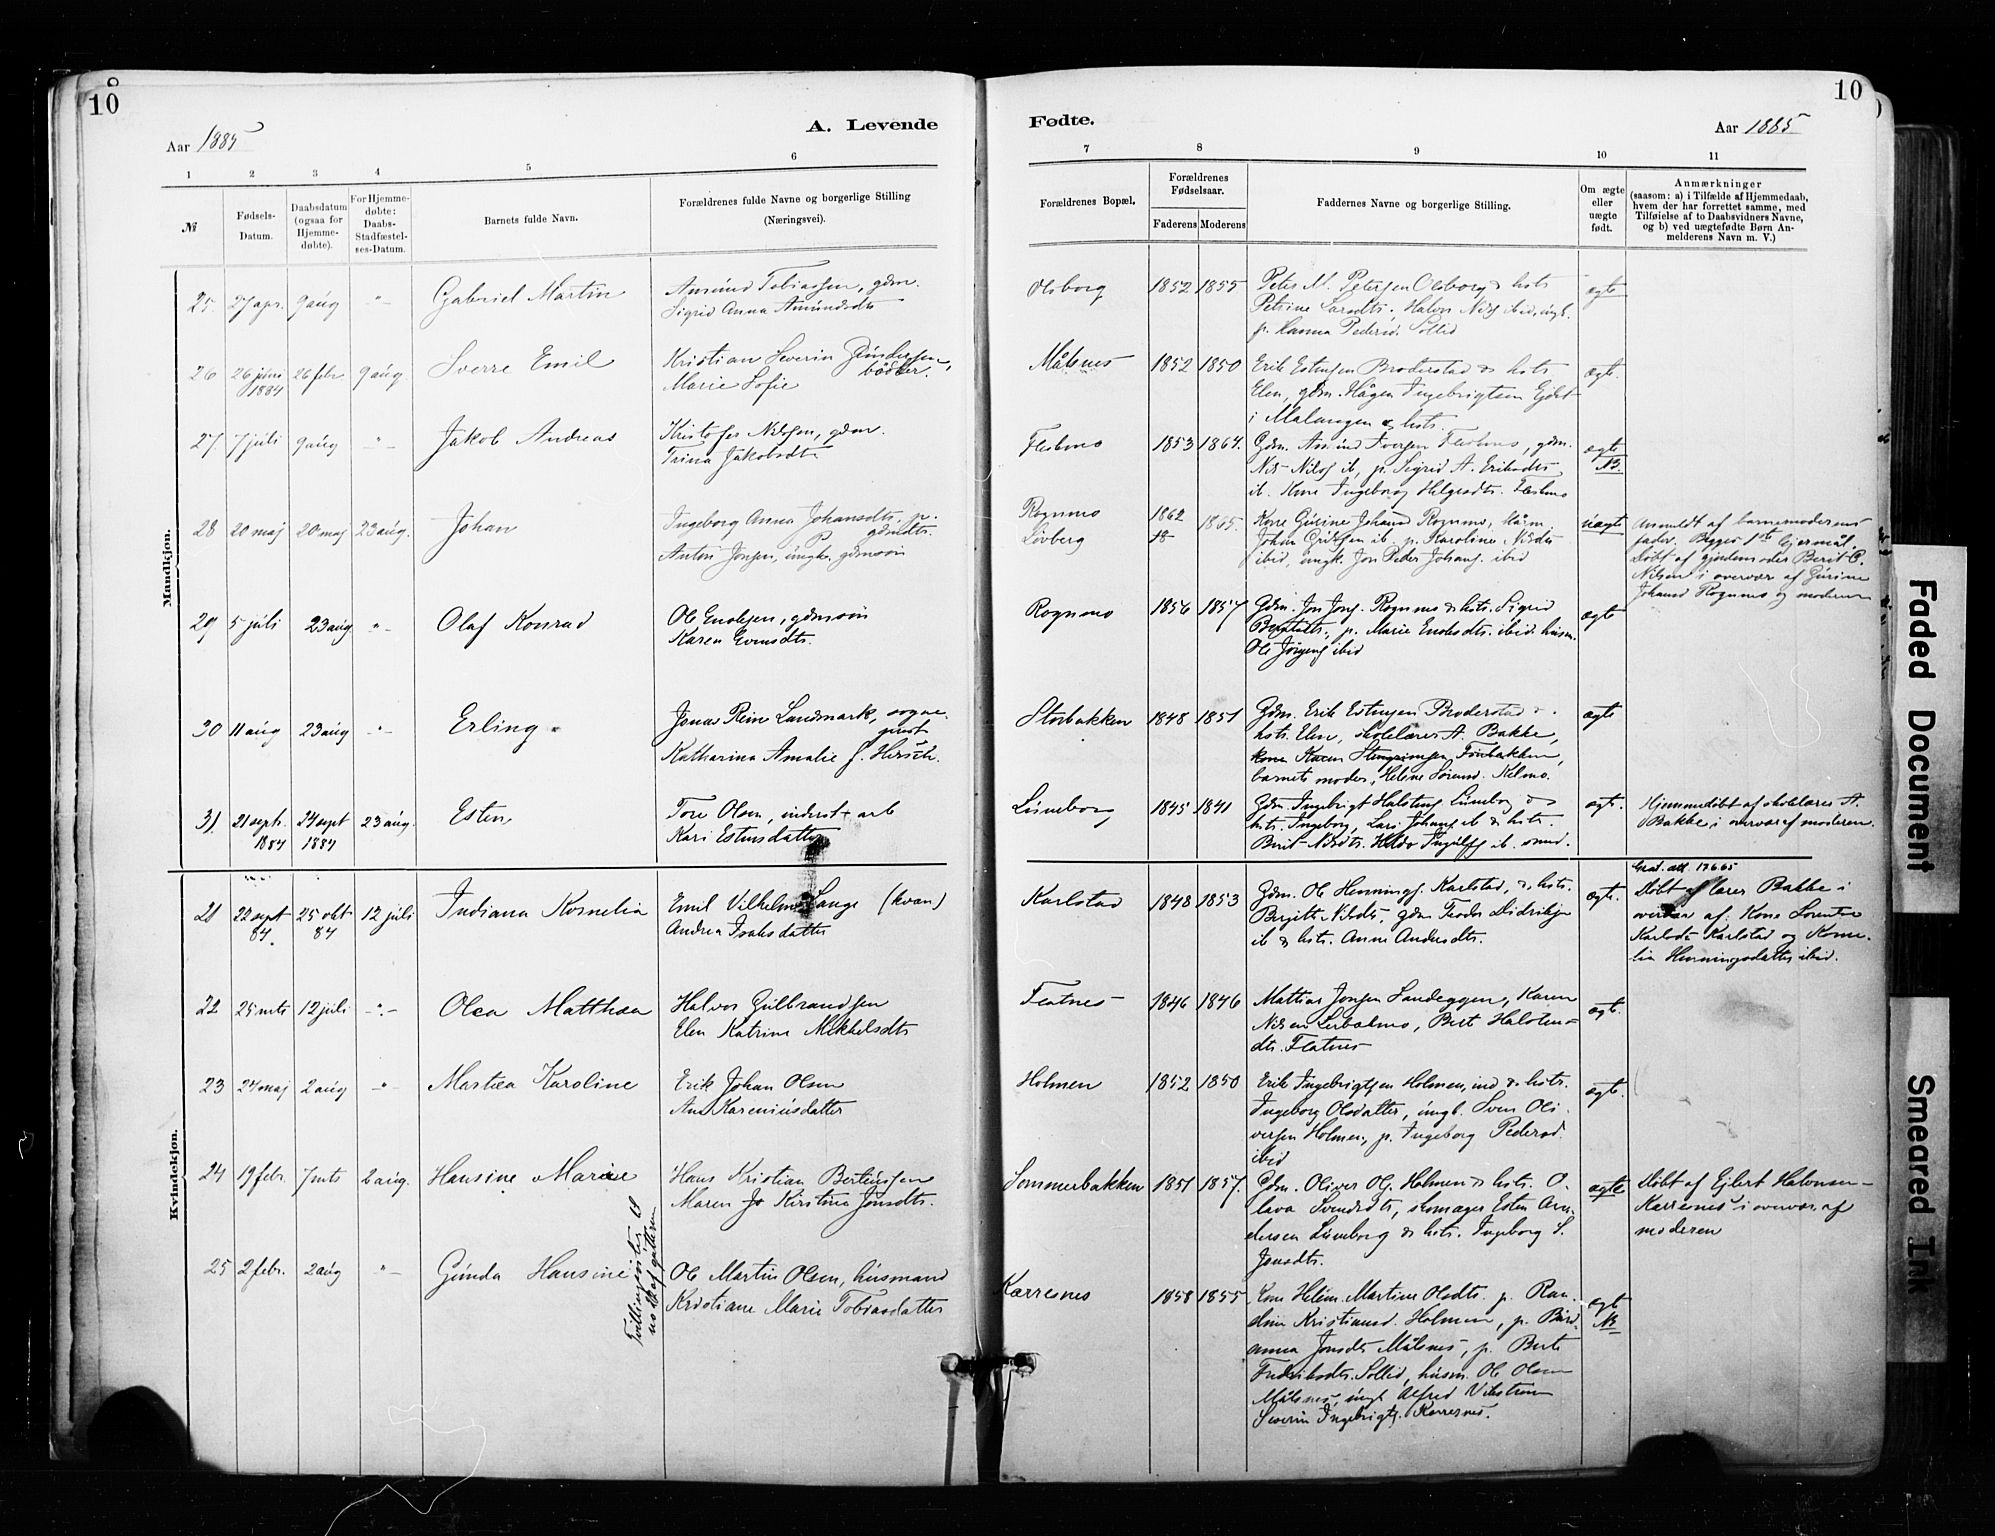 8
10
10
Aar 1885
A. Levende
Fødte.
Aar 1885
1 2 3 4 5 6 7 8 9 10 11
№
Fødsels-
Datum.
Daabsdatum
(ogsaa for
Hjemme-
døbte).
For Hjemme-
døbte:
Daabs-
Stadfæstel-
ses-Datum.
Barnets fulde Navn.
Forældrenes fulde Navne og borgerlige Stilling
(Næringsvei).
Forældrenes Bopæl.
Forældrenes
Fødselsaar.
Faderens Moderens
Faddernes Navne og borgerlige Stilling.
Om ægte
eller
uægte
født.
Anmærkninger
(saasom: a) i Tilfælde af Hjemmedaab,
hvem der har forrettet samme, med
Tilføielse af to Daabsvidners Navne,
og b) ved uægtefødte Børn An-
melderens Navn m. V.)
Mandkjøn.
25. 27 apr. 9 aug -"- Gabriel Martin
Amund Tobiassen, gdm.
Sigrid Anna Amundsdtr
Olsborg 1852 1855
Peter M. Petersen Olsborg & hstr
Petrine Larsdtr, Halvor Nils ibid, ungk.
p. Hanna Pedersd. Sollid
ægte
26 26 juni 1884 26 febr 9 aug Sverre Emil
Kristian Severin Gundersen,
bødker.
Marie Sofie
Målsnes 1852 1850
Erik Estensen Broderstad & hstr
Elen, gdm. Hågen Ingebrigtsen
i Malangen & hstr.
ægte.
27. 7 juli 9 aug -"- Jakob Andreas
Kristofer Nilsen, gdm.
Trina Jakobsdtr
Fleskmo 1853 1864.
Gdm. Iversen Fleskmo, gdm.
Nils Nilss ib, p. Sigrid A. Eriksdtr
ib. Kone Ingeborg Helgesdtr. Fleskmo
ægte
NB.
28 20 maj 20 maj 23 aug. Johan
Ingeborg Anna Johansdtr. p.
gdmdtr.
Anton Jonsen, ungk, gdmsøn
Rognmo
Løvberg
1862 1865.
Kone Gurine Johansd Rognmo,
Johan Eriksen ib. p. Karoline Nilsdtr
ibid, ungk. Jon Peder Johans. ibid
uægte
Anmeldt af barnemoderens
fader. Begges 1ste lejermål.
Døbt af gjordemoder Berit
Nilsen i overvær af Gurine
Johansd Rognmo og moderen
29 5 juli 23 aug -"- Olaf Konrad
Ole Enoksen, gdmsøn
Karen Evensdtr.
Rognmo 1856 1857
Gdm. Jon Jons. Rognmo & hstr. Sigrid
p. Marie Enoksdtr. ibid. husm.
Ole Jørgens ibid
ægte
30 11 aug 23 aug -"- Erling
Jonas Rein Landmark, sogne-
prest
Katharina Amalie f. Hirsch.
Storbakken 1848 1851
Gdm. Erik Estensen Broderstad &
hstr. Elen, skolelærer A. Bakke,
kone Karen Fossbakken,
barnets moder, Helene Kelmo.
ægte
31 21 sept. 1884 24 sept 1884 23 aug. Esten
Tore Olsen, inderst + arb
Kari Estensdatter
Luneborg 1845 1841
Gdm. Ingebrigt Halstens. Luneborg &
hstr. Ingeborg, Lars Johans ib & hstr.
Berit Nilsdtr. ib. smed.
ægte.
Hjemmedøbt af skolelærer A.
Bakke, i overvær af moderen.
Kvindekjøn.
21 22 sept 84. 25 okt 84 12 juli Indiana Kornelia
Emil Vilhelm Lange (kvæn)
Andrea Isaksdatter
Karlstad 1848 1853
Gdm. Ole Hennings. Karlstad, & hstr.
Birgitte Nilsdtr, gdm Teodor Didriksen
ib & hstr. Anne Andersdtr.
ægte.
Grad. att. 17665
Døbt af lærer Bakke i
overvær af: Kone Lorentse
Karlsdtr Karlstad og Korne-
lia Henningsdatter ibid.
22 25 mts 12 juli -"- Olea Matthea
Halvor Gulbrandsen
Elen Katrine Mikkelsdtr
Flatnes 1846 1846
Mattias Jonsen Sandeggen, Karen
Nilsen Lerbakmo, Berit Halstens-
dtr. Flatnes
ægte.
23 24 maj 2 aug -"- Martea Karoline
Erik Johan Olsen
Ane Kareniusdatter
Holmen 1852 1850
Erik Ingebrigtsen Holmen, ind & hstr.
Ingeborg Olsdatter, ungk. Sven Oli-
versen Holmen, p. Ingeborg Pedersd.
ibid
ægte.
24 19 febr. 7 mts 2 aug. Hansine Marie
Hans Kristian Bertinusen
Maren Jo Kirstine Jonsdtr.
Sommerbakken 1851 1857.
Gdm. Oliver Ols. Holmen & hstr. O-
lava Svendsdtr, skomager Esten An-
dersen Luneborg & hstr. Ingeborg S.
Jonsdtr.
ægte
Døbt af Ejlert Halvorsen
Karresnes i overvær af
moderen
25 2 febr. 2 aug -"- Gunda Hansine
Tvillingsøster til
no af gutterne
Ole Martin Olsen, husmand
Kristiane Marie Tobiasdatter
Karresnes 1858 1855
Kone Helene Martine Olsdtr. p. Ran-
dine Kristiansd. Holmen, p. Berd-
anna Jonsdtr Målsnes, p. Berte
Fredriksdtr. Sollid, husm. Ole Olsen
Målsnes, ungk Alfred Vikstrøm
Severin Ingebrigts. Karresnes.
ægte
NB
Faded Document
Smeared Ink